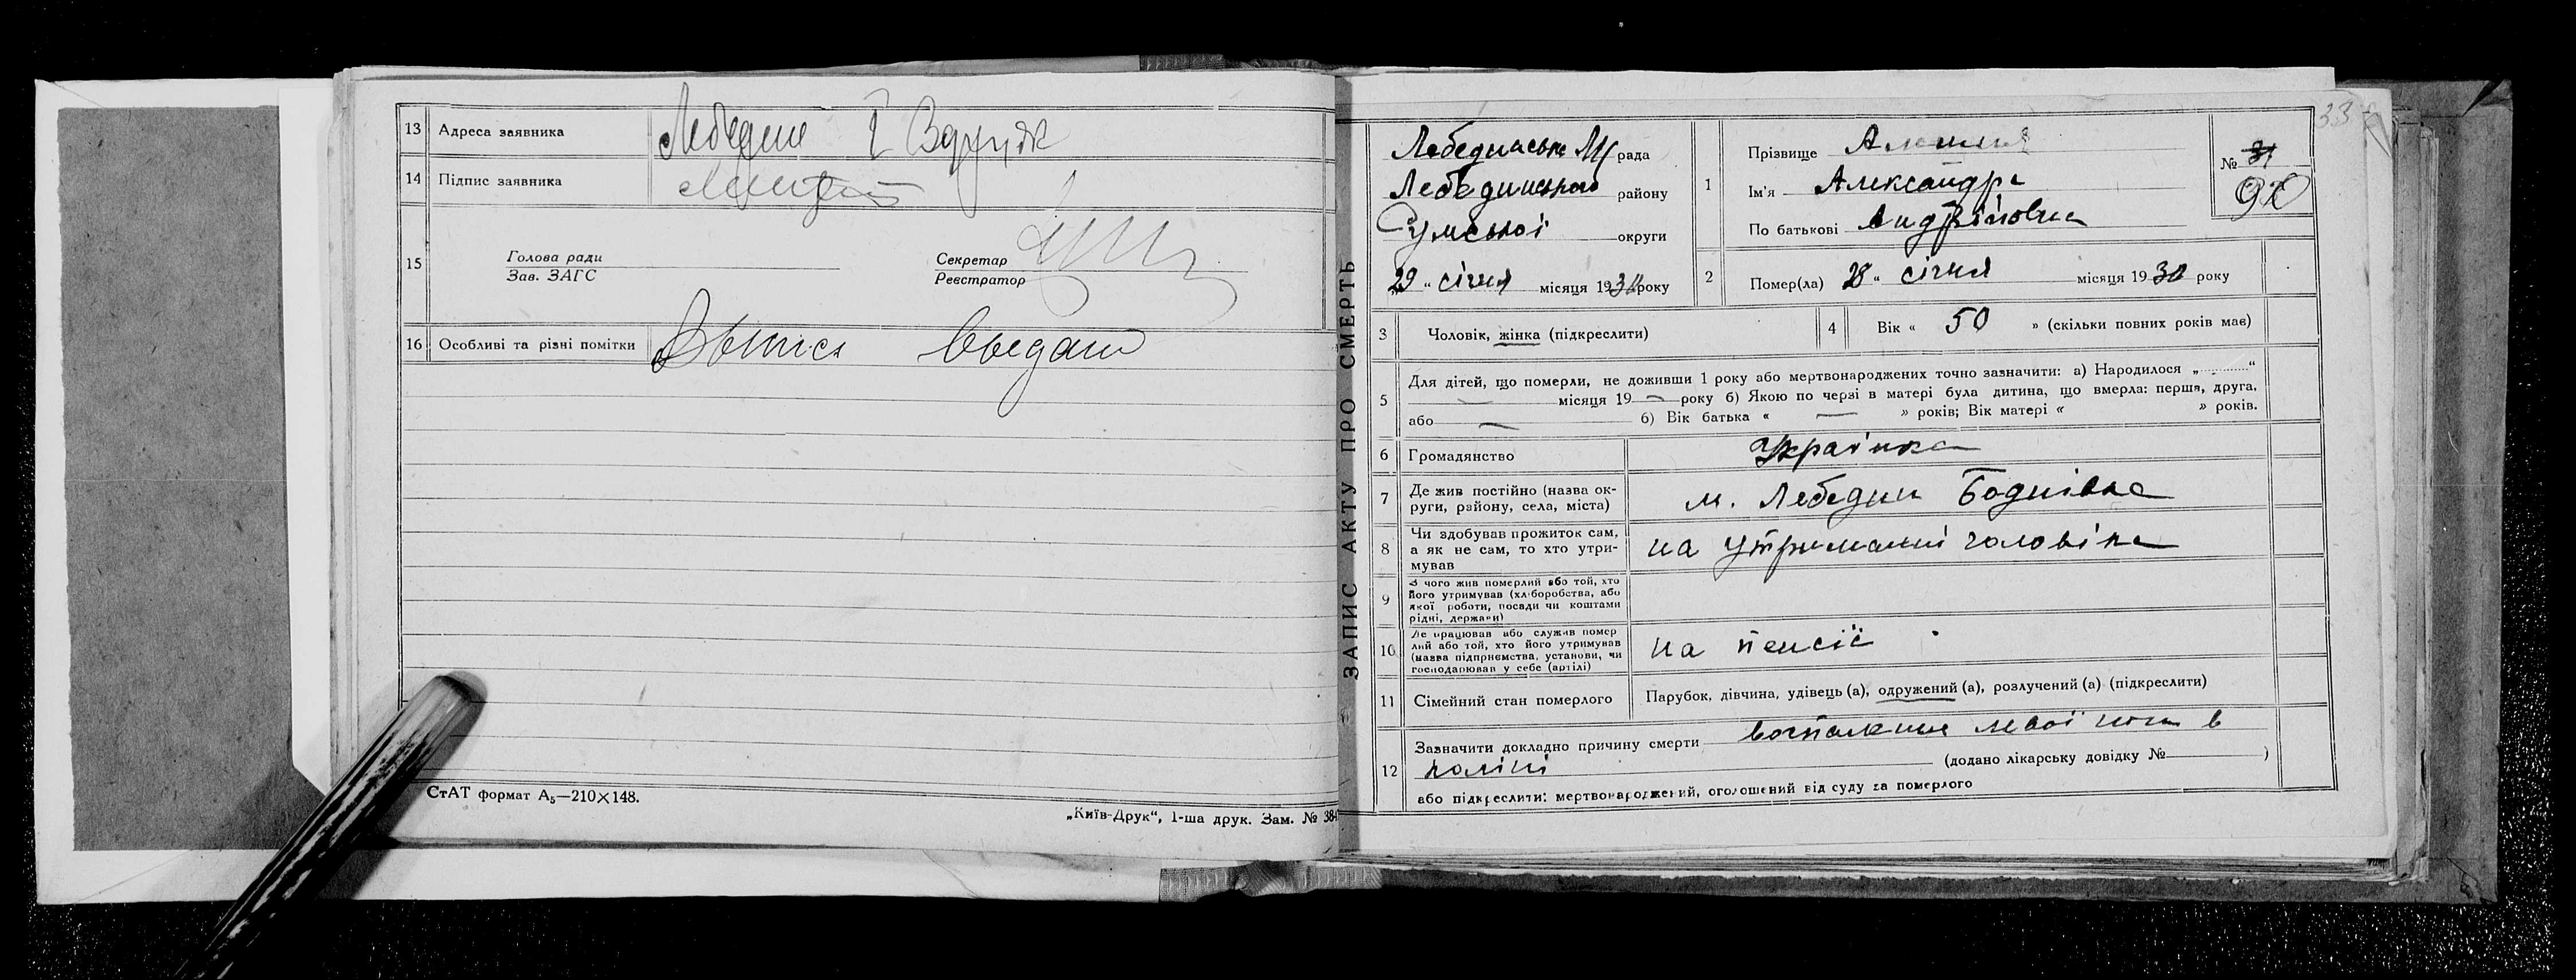 13 Адреса заявника Лебедин
14 Підпис заявника
15 Голова ради
Зав. ЗАГС
Секретар
Реєстратор
16 Особливі та різні помітки
СтАТ формат А₅—210×148.
„Київ-Друк“, 1-ша друк. Зам. № 384
ЗАПИС АКТУ ПРО СМЕРТЬ
33
Лебединська рада
Лебединського району
Сумської округи
29 „ січня місяця 193 року
1 Прізвище
Ім'я Александра
По батькові Андріївна
№ 31
90
2 Помер(ла) 28 „ січня місяця 1930 року
3 Чоловік, жінка (підкреслити)
4 Вік « 50 » (скільки повних років має)
5 Для дітей, що померли, не доживши 1 року або мертвонароджених точно зазначити: а) Народилося „ “
місяця 19 — року б) Якою по черзі в матері була дитина, що вмерла: перша, друга,
або — б) Вік батька « — » років; Вік матері « » років.
6 Громадянство Українка
7 Де жив постійно (назва ок-
руги, району, села, міста) м. Лебедин
8 Чи здобував прожиток сам,
а як не сам, то хто утри-
мував на утриманні чоловіка
9 З чого жив померлий або той, хто
його утримував (хліборобства, або
якої роботи, посади чи коштами
рідні, держави)
10 Де працював або служив помер
лий або той, хто його утримував
(назва підприємства, установи, чи
господарював у себе (артілі) на пенсії
11 Сімейний стан померлого Парубок, дівчина, удівець (а), одружений (а), розлучений (а) (підкреслити)
12 Зазначити докладно причину смерти в
коліні (додано лікарську довідку № )
або підкреслити: мертвонароджений, оголошений від суду за померлого